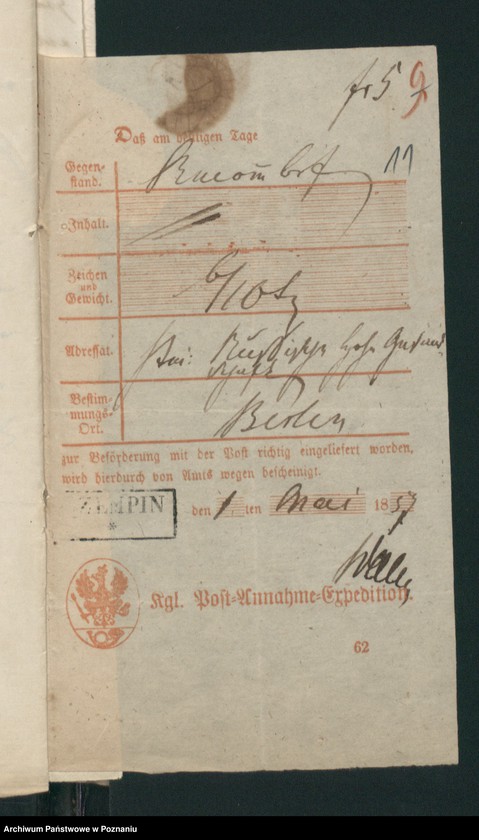 fr 5 9
Daß am heutigen Tage
11
Gegen-
stand.
Inhalt.
Zeichen
und
Gewicht.
6/10 Lz
Adressat.
Bestim-
mungs-
Ort.
Berlin
zur Beförderung mit der Post richtig eingeliefert worden,
wird hierdurch von Amts wegen bescheinigt.
ZEMPIN
*
den 1 ten Mai 1857
Kgl. Post-Annahme-Expedition.
62
Archiwum Państwowe w Poznaniu